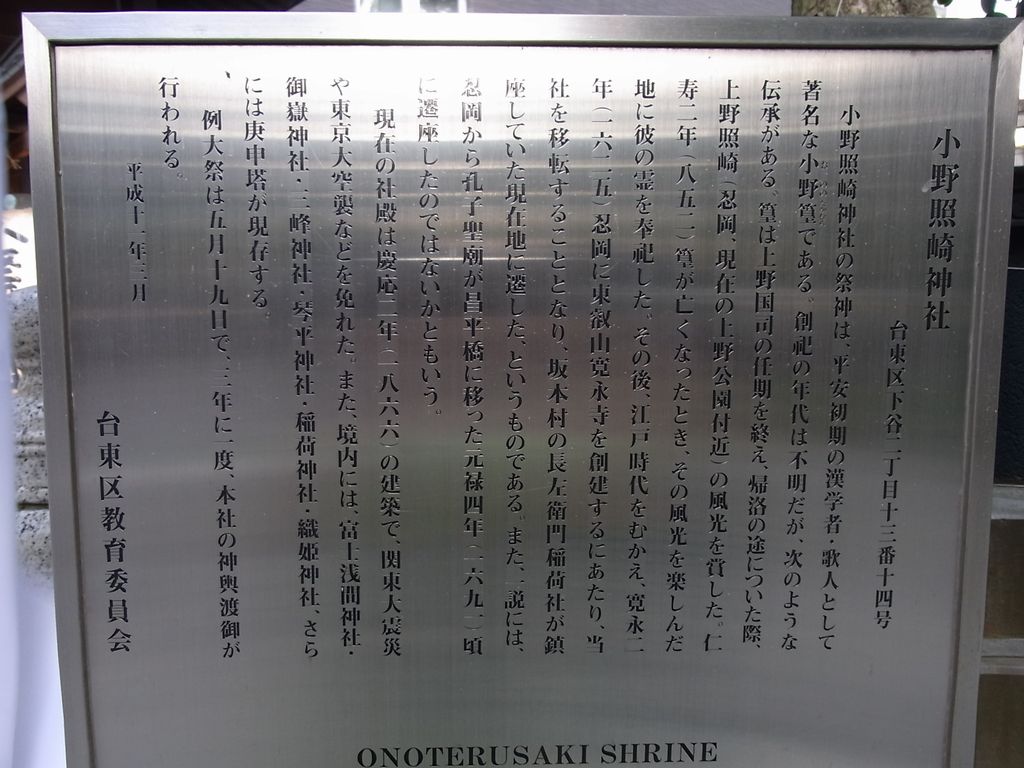 小野照崎神社
台東区下谷二丁目十三番十四号
小野照崎神社の祭神は、平安初期の漢学者・歌人として
著名な小野篁である。創祀の年代は不明だが、次のような
伝承がある。篁は上野国司の任期を終え、帰洛の途についた際、
上野照崎（忍岡、現在の上野公園付近）の風光を賞した。仁
寿二年（八五二）篁が亡くなったとき、その風光を楽しんだ
地に彼の霊を奉祀した。その後、江戸時代をむかえ、寛永二
年（一六二五）忍岡に東叡山寛永寺を創建するにあたり、当
社を移転することとなり、坂本村の長左衛門稲荷社が鎮
座していた現在地に遷した、というものである。また、一説には、
忍岡から孔子聖廟が昌平橋に移った元禄四年（一六九一）頃
に遷座したのではないかともいう。
現在の社殿は慶応二年（一八六六）の建築で、関東大震災
や東京大空襲などを免れた。また、境内には、富士浅間神社・
御嶽神社・三峰神社・琴平神社・稲荷神社・織姫神社、さら
には庚申塔が現存する。
例大祭は五月十九日で、三年に一度、本社の神輿渡御が
行われる。
平成十一年三月
台東区教育委員会
ONOTERUSAKI SHRINE